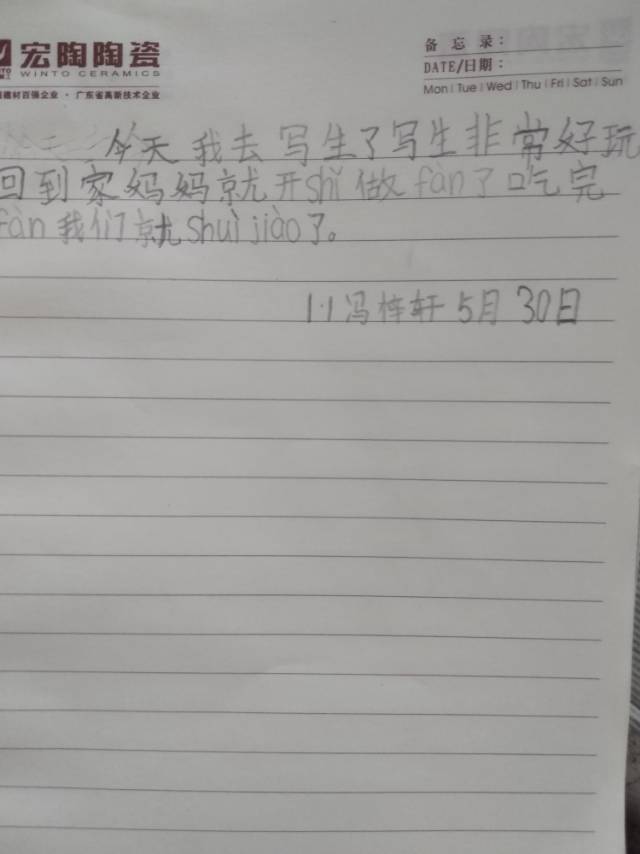 宏陶陶瓷
WINTO CERAMICS
建材百强企业 · 广东省高新技术企业
备忘录:
DATE/日期:
Mon | Tue | Wed | Thu | Fri | Sat | Sun
今天我去写生了写生非常好玩
回到家妈妈就开shǐ做fàn了吃完
fàn我们就shuì jiào了。
1.1冯梓轩 5月30日